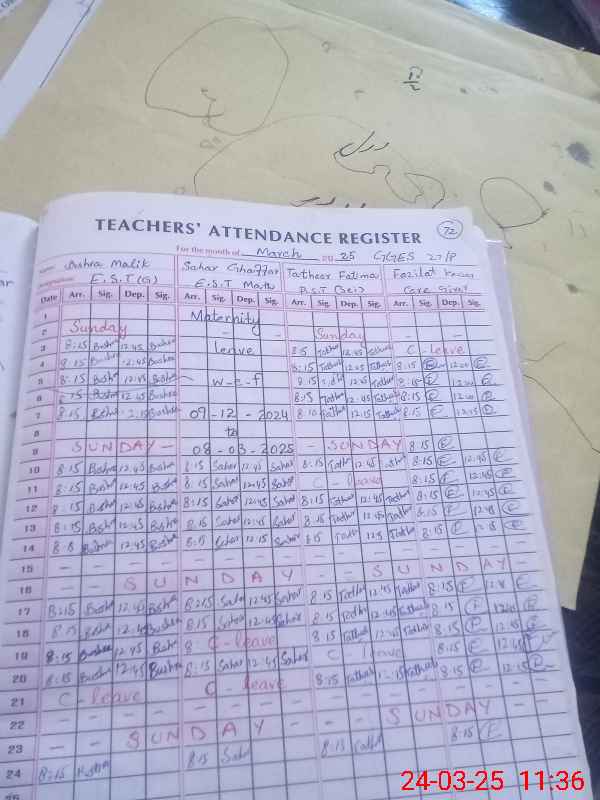 72
TEACHERS' ATTENDANCE REGISTER
For the month of March 2025 GGES 27/P
Bushra Malik Sahar Ghaffar Tatheer Fatima Fazilat
E.S.T (G) E.S.T Math P.S.T (Sci) Care Giver
Date Arr. Sig. Dep. Sig. Arr. Sig. Dep. Sig. Arr. Sig. Dep. Sig. Arr. Sig. Dep. Sig.
1 Maternity
2 Sunday - - Sunday
3 8:15 Bushra 12:45 Bushra leave 8:15 Tatheer 12:45 Tatheer C-leave
4 8:15 Bushra 12:45 Bushra 8:15 Tatheer 12:45 Tatheer 8:15 E 12:00 E
5 8:15 Bushra 12:45 Bushra w-e-f 8:15 12:45 Tatheer 8:15 E 12:00 E
6 8:15 Bushra 12:45 Bushra 8:15 Tatheer 12:45 Tatheer 8:15 E 12:00 E
7 8:15 Bushra 12:15 Bushra 09-12-2024 8:10 Tatheer 12:15 Tatheer 8:15 E 12:15 E
8 to
9 SUNDAY - 08-03-2025 - SUNDAY 8:15 E
10 8:15 Bushra 12:45 Bushra 8:15 Sahar 12:45 Sahar 8:15 Tatheer 12:45 8:15 E 12:45 E
11 8:15 Bushra 12:45 Bushra 8:15 Sahar 12:45 Sahar C - leave 8:15 E 12:45 E
12 8:15 Bushra 12:45 Bushra 8:15 Sahar 12:45 Sahar 8:15 Tatheer 12:45 Tatheer 8:15 E 12:45 E
13 8:15 Bushra 12:45 Bushra 8:15 Sahar 12:45 Sahar 8:15 Tatheer 12:45 Tatheer 8:15 E 12:45 E
14 Bushra 12:45 Bushra 8:15 Sahar 12:15 Sahar 8:15 Tatheer Tatheer 8:15 E E
15 - - - - - - - - - - - -
16 SUNDAY - - SUNDAY -
17 8:15 Bushra 12:45 Bushra 8:15 Sahar 12:45 Sahar 8:15 Tatheer 12:45 Tatheer 8:15 E 12:45 E
18 8:15 Bushra 12:45 Bushra 8:15 Sahar 12:45 Sahar 8:15 Tatheer 12:45 Tatheer 8:15 E E
19 8:15 Bushra 12:45 Bushra C-leave 8:15 Tatheer 12:45 Tatheer 8:15 E 12:45 E
20 8:15 Bushra 12:45 Bushra 8:15 Sahar 12:45 Sahar C leave 8:15 E 12:45 E
21 C-leave C-leave 8:15 Tatheer 12:15 Tatheer 8:15 E 12:15 E
22 - - - - - - - - - - - -
23 - - SUNDAY - - - - SUNDAY -
24 8:15 Bushra 8:15 Sahar 8:15 8:15 E
24-03-25 11:36